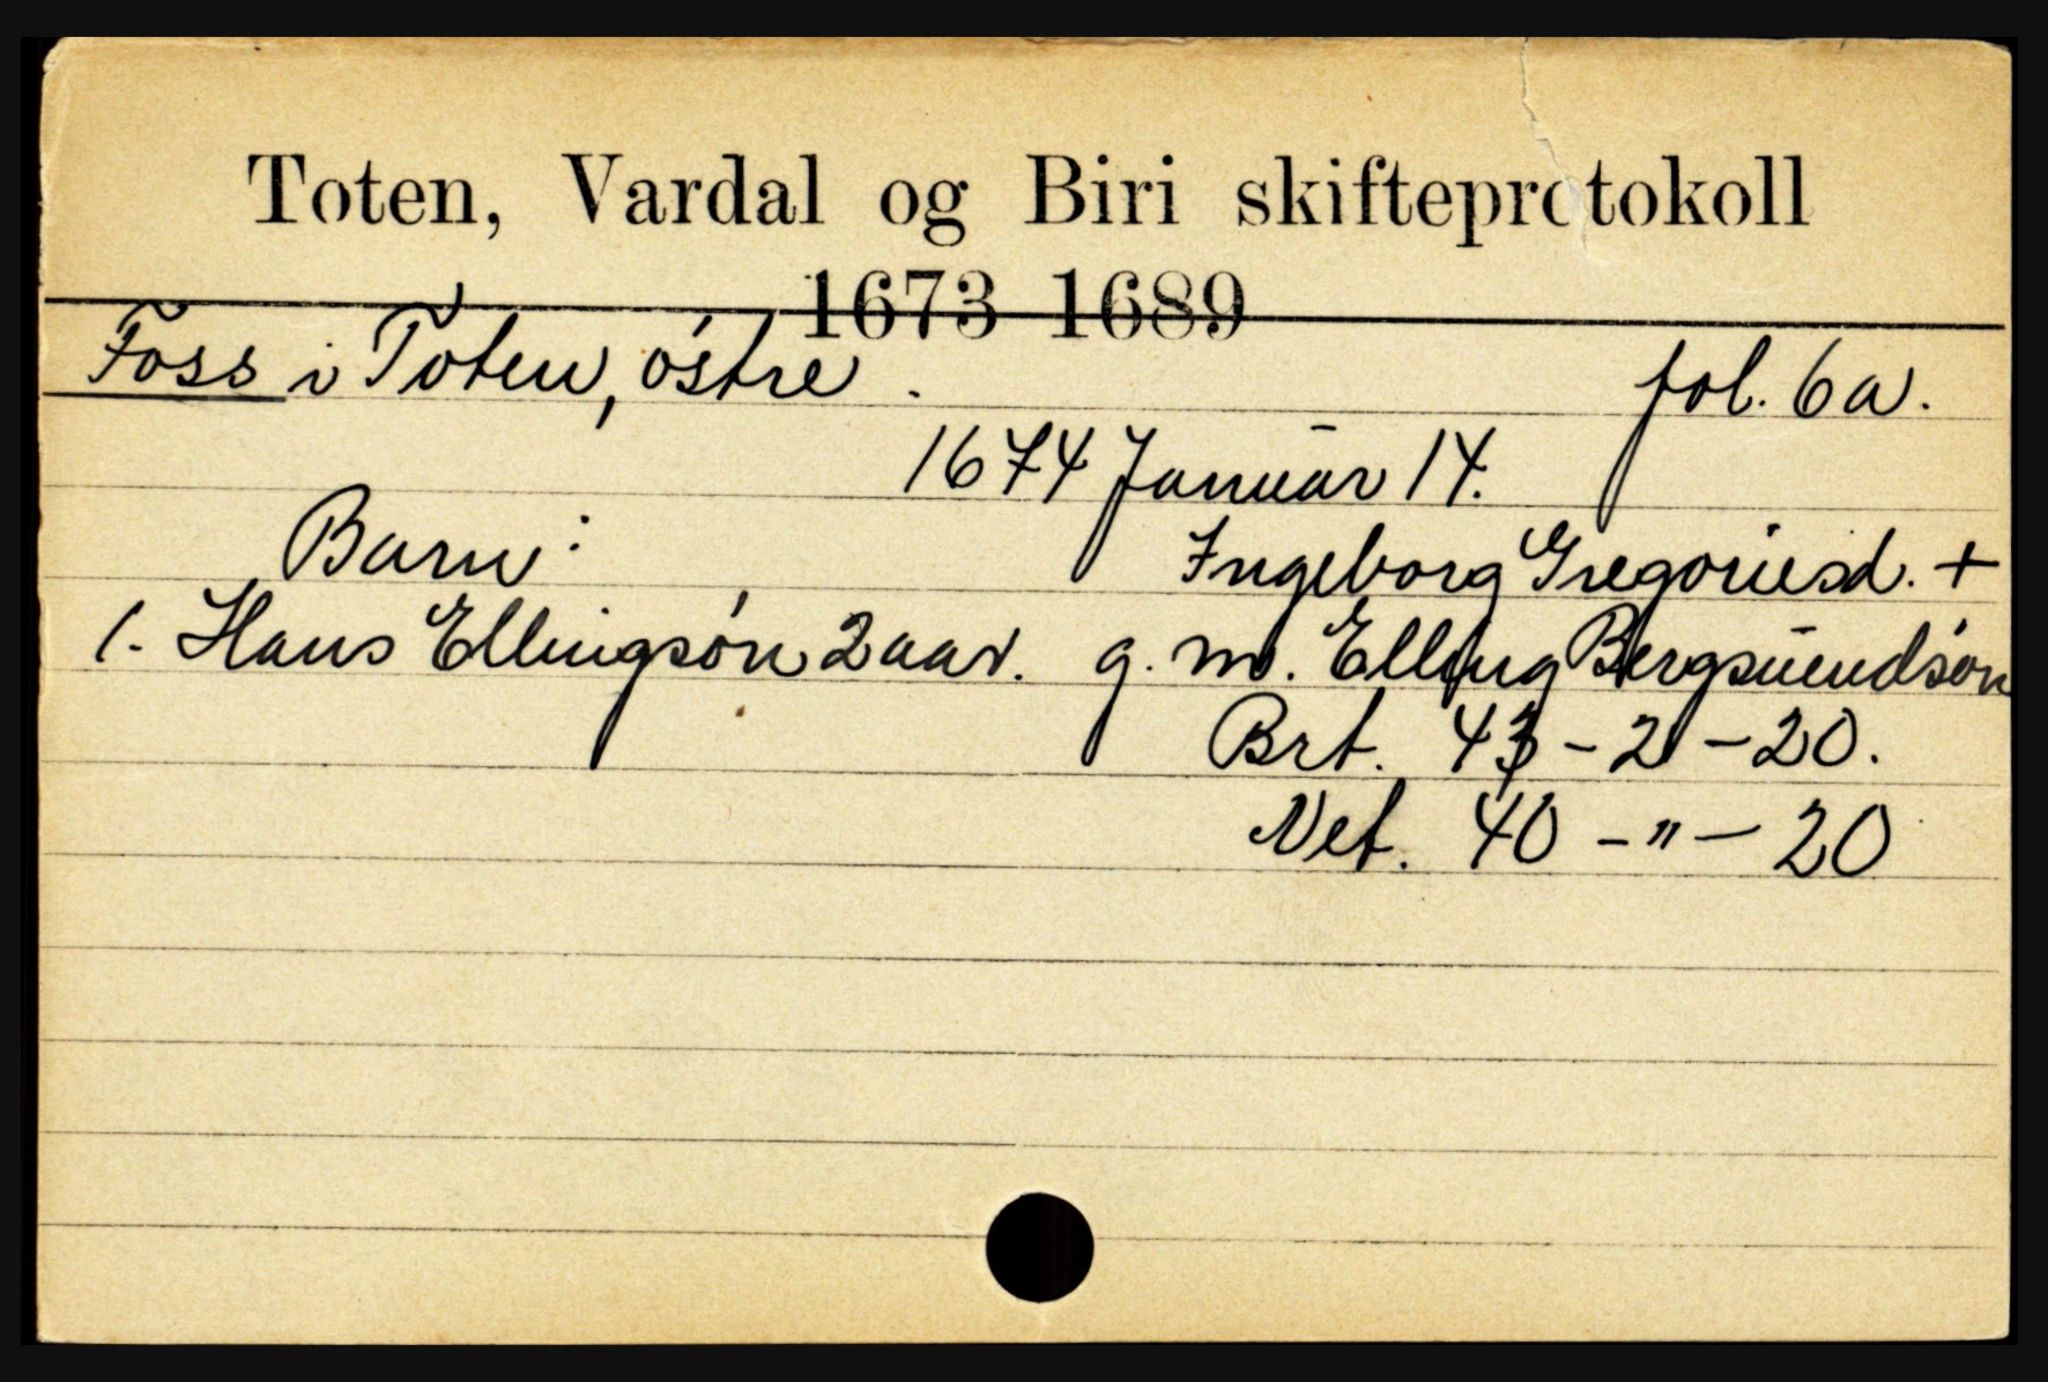 Toten, Vardal og Biri skifteprotokoll
1673 1689
Foss i Toten, østre. fol. 6a.
1674 Januar 14.
Barn: Ingeborg Gregoriesd. +
1. Hans Ellingsøn 2 aar. g. m. Elling Bergsuendsøn
Brt. 43 - 2 - 20.
Net. 40 - " - 20